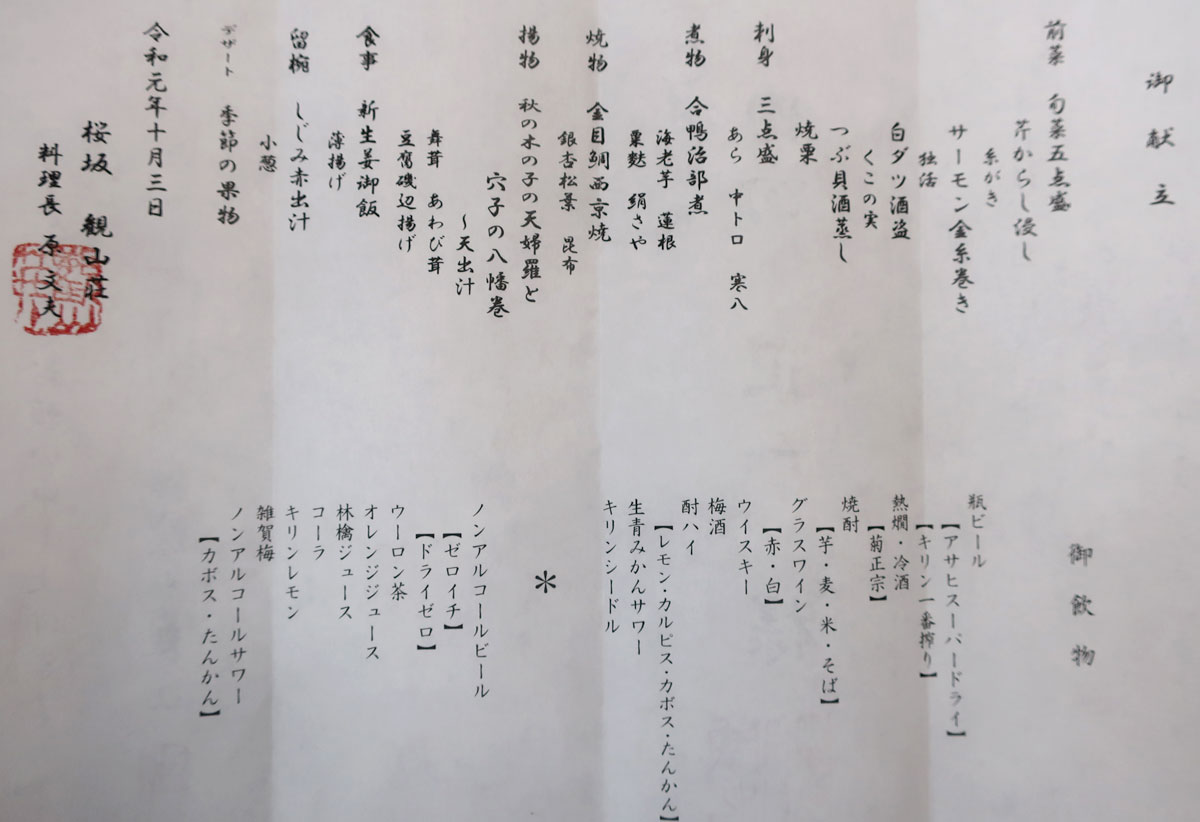 御献立
前菜 旬菜五点盛
芹からし浸し
糸がき
サーモン金糸巻き
独活
白ダツ酒盗
くこの実
つぶ貝酒蒸し
焼栗
刺身 三点盛
あら 中トロ 寒八
煮物 合鴨治部煮
海老芋 蓮根
粟麩 絹さや
焼物 金目鯛西京焼
銀杏松葉 昆布
揚物 秋の木の子の天婦羅と
穴子の八幡巻
～天出汁
舞茸 あわび茸
豆腐磯辺揚げ
食事 新生姜御飯
薄揚げ
留椀 しじみ赤出汁
小葱
デザート 季節の果物
令和元年十月三日
桜坂 観山荘
料理長 原文夫
御飲物
瓶ビール
【アサヒスーパードライ】
【キリン一番搾り】
熱燗・冷酒
【菊正宗】
焼酎
【芋・麦・米・そば】
グラスワイン
【赤・白】
ウイスキー
梅酒
酎ハイ
【レモン・カルピス・カボス・たんかん】
生青みかんサワー
キリンシードル
＊
ノンアルコールビール
【ゼロイチ】
【ドライゼロ】
ウーロン茶
オレンジジュース
林檎ジュース
コーラ
キリンレモン
雑賀梅
ノンアルコールサワー
【カボス・たんかん】